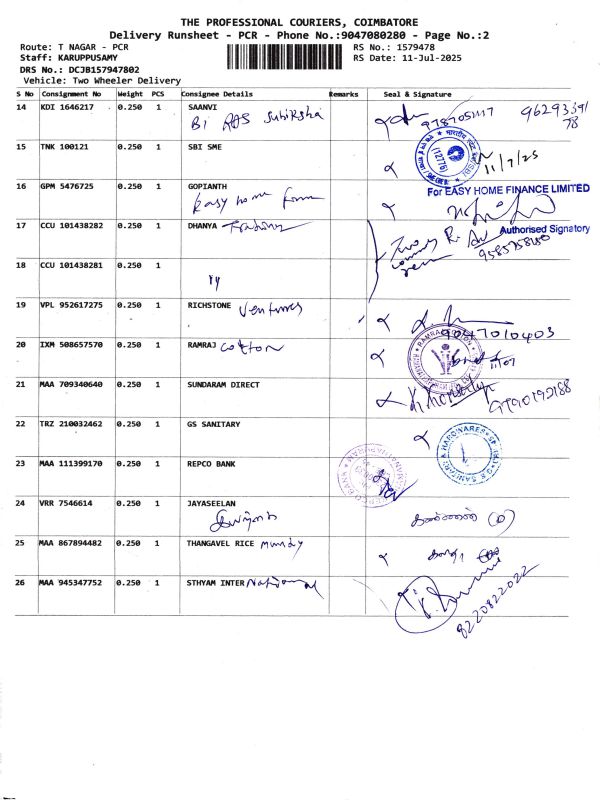 THE PROFESSIONAL COURIERS, COIMBATORE
Delivery Runsheet - PCR - Phone No.:9047080280 - Page No.:2
Route: T NAGAR - PCR RS No.: 1579478
Staff: KARUPPUSAMY RS Date: 11-Jul-2025
DRS No.: DCJB157947802
Vehicle: Two Wheeler Delivery
S No Consignment No Weight PCS Consignee Details Remarks Seal & Signature
14 KDI 1646217 0.250 1 SAANVI
Subiksha
15 TNK 100121 0.250 1 SBI SME
(12776)
11/7/25
16 GPM 5476725 0.250 1 GOPIANTH
Easy home
For EASY HOME FINANCE LIMITED
Authorised Signatory
17 CCU 101438282 0.250 1 DHANYA
18 CCU 101438281 0.250 1
19 VPL 952617275 0.250 1 RICHSTONE Ventures
9047010403
20 IXM 508657570 0.250 1 RAMRAJ Cotton
21 MAA 709340640 0.250 1 SUNDARAM DIRECT
22 TRZ 210032462 0.250 1 GS SANITARY
23 MAA 111399170 0.250 1 REPCO BANK
24 VRR 7546614 0.250 1 JAYASEELAN
25 MAA 867894482 0.250 1 THANGAVEL RICE Mundy
26 MAA 945347752 0.250 1 STHYAM INTER National
8220822022